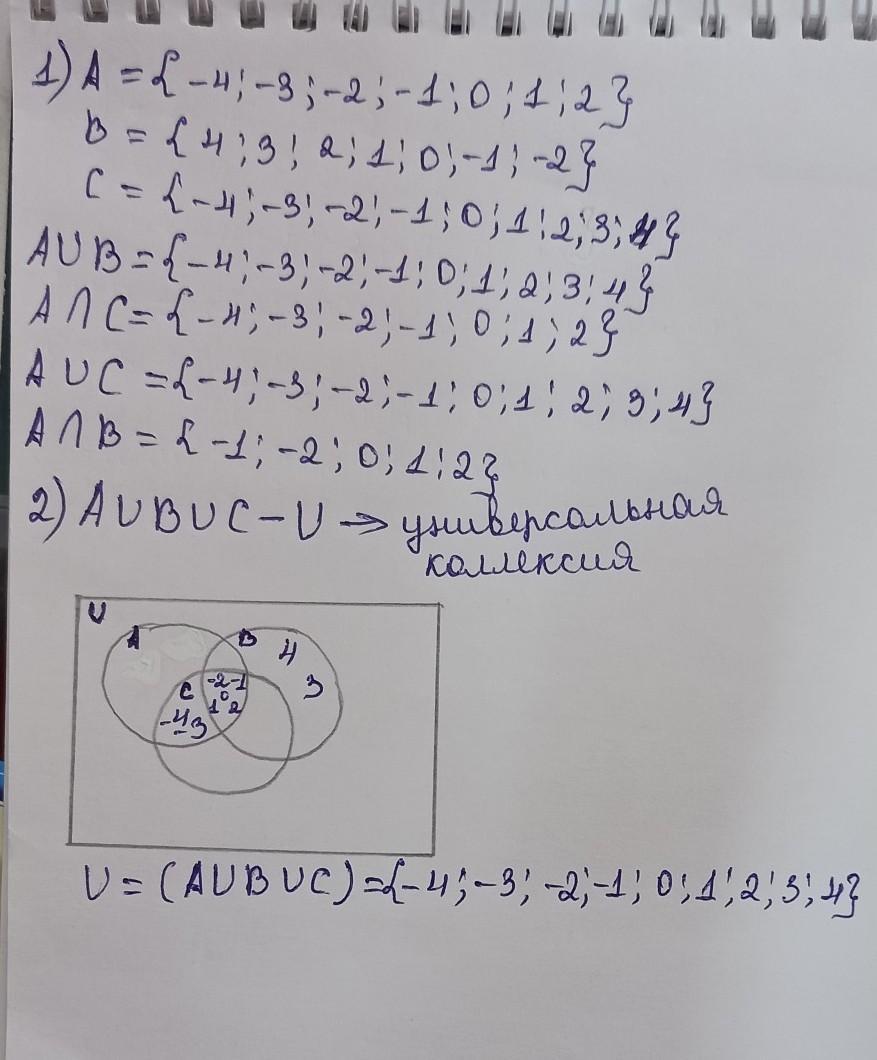 1) A = {-4; -3; -2; -1; 0; 1; 2}
B = {4; 3; 2; 1; 0; -1; -2}
C = {-4; -3; -2; -1; 0; 1; 2; 3; 4}
A∪B = {-4; -3; -2; -1; 0; 1; 2; 3; 4}
A∩C = {-4; -3; -2; -1; 0; 1; 2}
A∪C = {-4; -3; -2; -1; 0; 1; 2; 3; 4}
A∩B = {-1; -2; 0; 1; 2}
2) A∪B∪C - U → универсальная
коллексия
U
A B 4
C -2 -1 3
0
1 2
-4
-3
U = (A∪B∪C) = {-4; -3; -2; -1; 0; 1; 2; 3; 4}